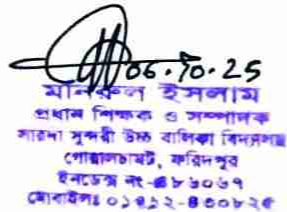 06.10.25
মনিরুল ইসলাম
প্রধান শিক্ষক ও সম্পাদক
সারদা সুন্দরী উচ্চ বালিকা বিদ্যালয়
গোয়ালচামট, ফরিদপুর
ইনডেক্স নং-৪৮৬০৬৭
মোবাইলঃ